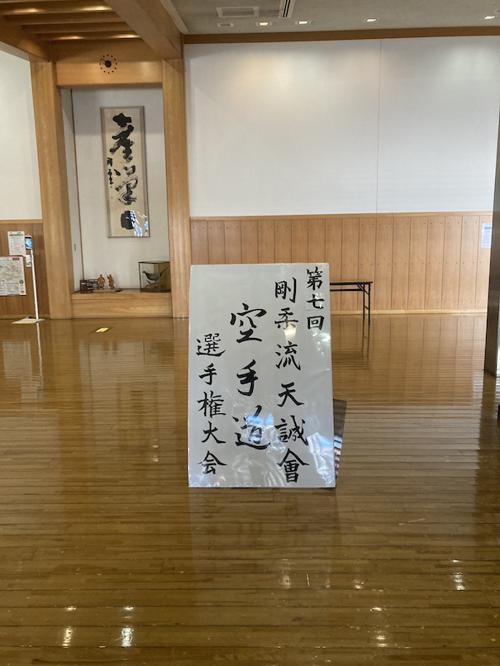 第七回
剛柔流天誠會
空手道
選手権大会